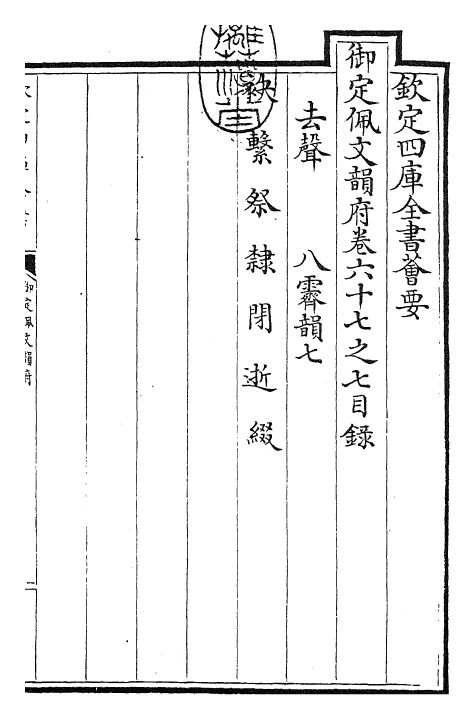 欽定四庫全書薈要
御定佩文韻府卷六十七之七目錄
去聲 八霽韻七
繫 祭 隸 閉 逝 綴
御定佩文韻府